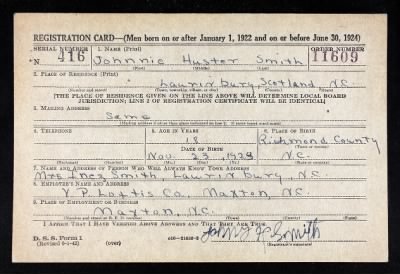 REGISTRATION CARD—(Men born on or after January 1, 1922 and on or before June 30, 1924)
SERIAL NUMBER 1. NAME (Print) ORDER NUMBER
N 416 Johnnie Huster Smith 11609
(First) (Middle) (Last)
2. PLACE OF RESIDENCE (Print)
Laurinburg, Scotland, N.C.
(Number and street) (Town, township, village, or city) (County) (State)
[THE PLACE OF RESIDENCE GIVEN ON THE LINE ABOVE WILL DETERMINE LOCAL BOARD
JURISDICTION; LINE 2 OF REGISTRATION CERTIFICATE WILL BE IDENTICAL]
3. MAILING ADDRESS
Same
4. TELEPHONE 5. AGE IN YEARS 6. PLACE OF BIRTH
18 Richmond County
DATE OF BIRTH
Nov. 23, 1923 N.C.
(Exchange) (Number) (Mo.) (Day) (Yr.) (State or country)
7. NAME AND ADDRESS OF PERSON WHO WILL ALWAYS KNOW YOUR ADDRESS
Mrs Inez Smith, Laurinburg, N.C.
8. EMPLOYER'S NAME AND ADDRESS
V. P. Loftis Co., Maxton, N.C.
9. PLACE OF EMPLOYMENT OR BUSINESS
Maxton, N.C.
I AFFIRM THAT I HAVE VERIFIED ABOVE ANSWERS AND THAT THEY ARE TRUE.
D. S. S. Form 1
(Revised 6-1-42) (over) (Registrant's signature)
Smith